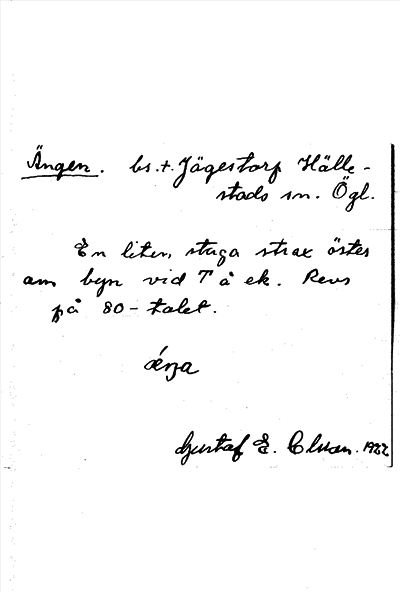 Ängen. bs.t. Jägestorp Hälle-
stads sn. Ögl.
En liten stuga strax öster
om byn vid T å ek. Revs
på 80-talet.
Gustaf E. 1922